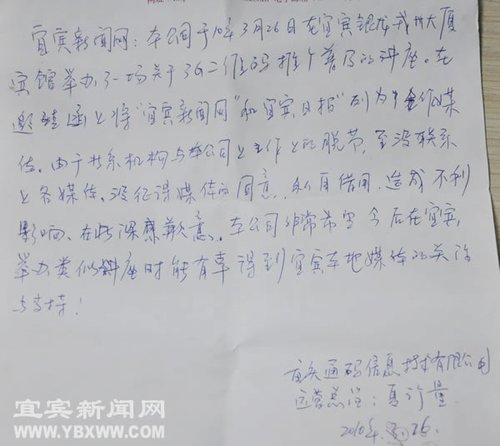 宜宾新闻网：本公司于10年3月26日在宜宾银龙 大厦
宾馆举办了一场关于3G二维码推广普及的讲座。在
邀请函上将"宜宾新闻网"和宜宾日报"列为合作媒
体。由于 机构与本公司之工作上的脱节，至没联系
上各媒体。没征得媒体的同意，私自借用，造成不利
影响、在此深感歉意。本公司非常希望今后在宜宾
举办类似讲座时能有幸得到宜宾本地媒体的关注
与支持！
通码信息技术有限公司
运营总经：夏
2010年3月26.
宜宾新闻网
WWW.YBXWW.COM